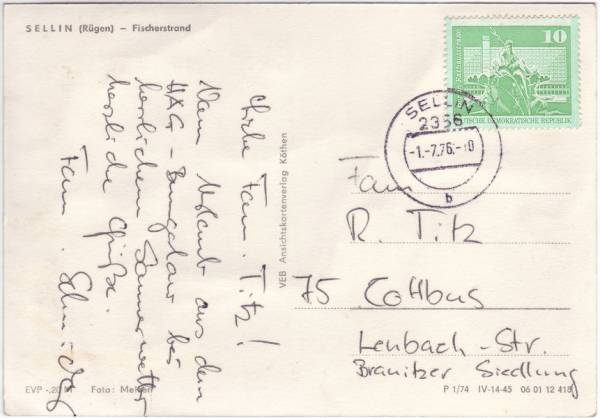 SELLIN (Rügen) – Fischerstrand
Liebe Fam. Titz!
Vom Urlaub aus dem
HAG - Bungalow bei
herrlichem Sommerwetter
herzliche Grüße.
Fam. Schmidt
VEB Ansichtskartenverlag Köthen
10
DEUTSCHE DEMOKRATISCHE REPUBLIK
SELLIN
2356
-1.-7.76.-10
b
Fam.
R. Titz
75 Cottbus
Lenbach-Str.
Branitzer Siedlung
EVP -.20 M Foto:
P 1/74 IV-14-45 06 01 12 418